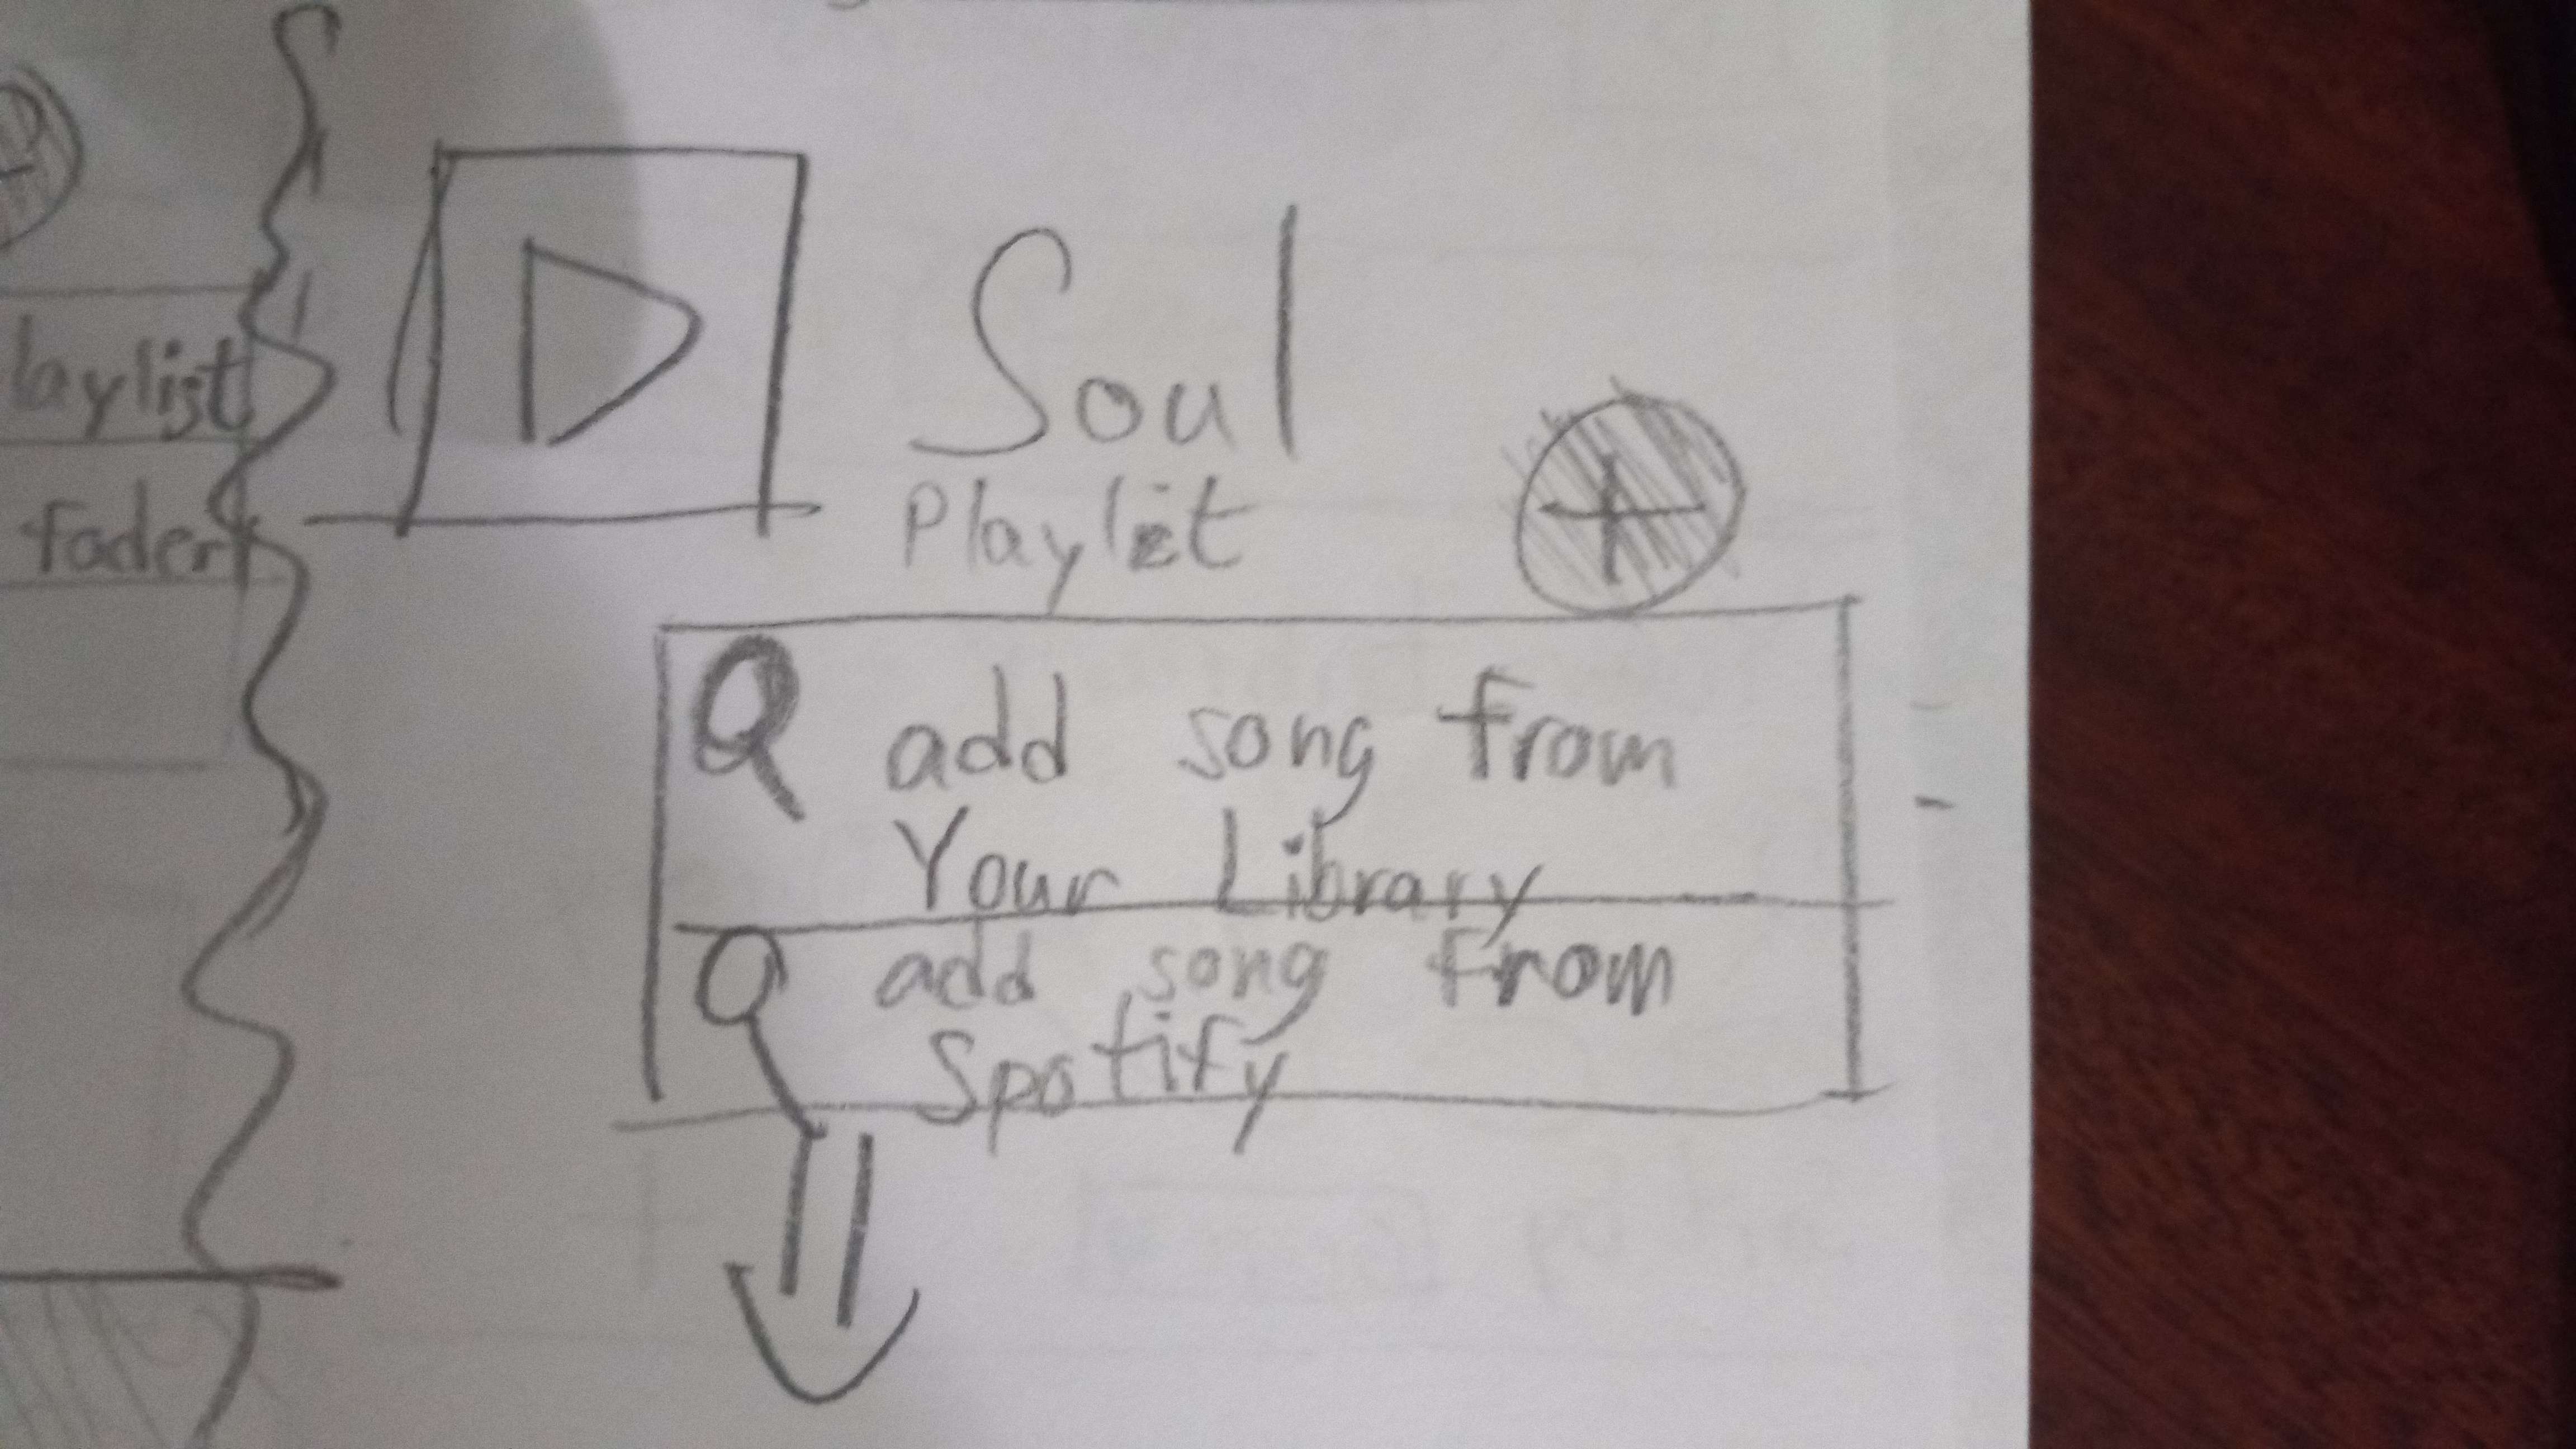 laylist
fader
Soul
Playlist
add song from
Your Library
add song from
Spotify